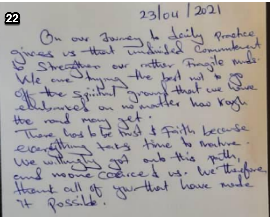 22
23/04/2021
On our Journey to daily Practice,
gives us that undivided Commitment
to Strengthen our rather Fragile minds.
We are trying the best not to go
off the spiritual ground that we have
embarked on no matter how rough
the road may get.
There has to be trust & Faith because
everything takes time to mature.
We willingly got onto this path,
and no one coerced us. We therefore
thank all of you that have made
it possible.